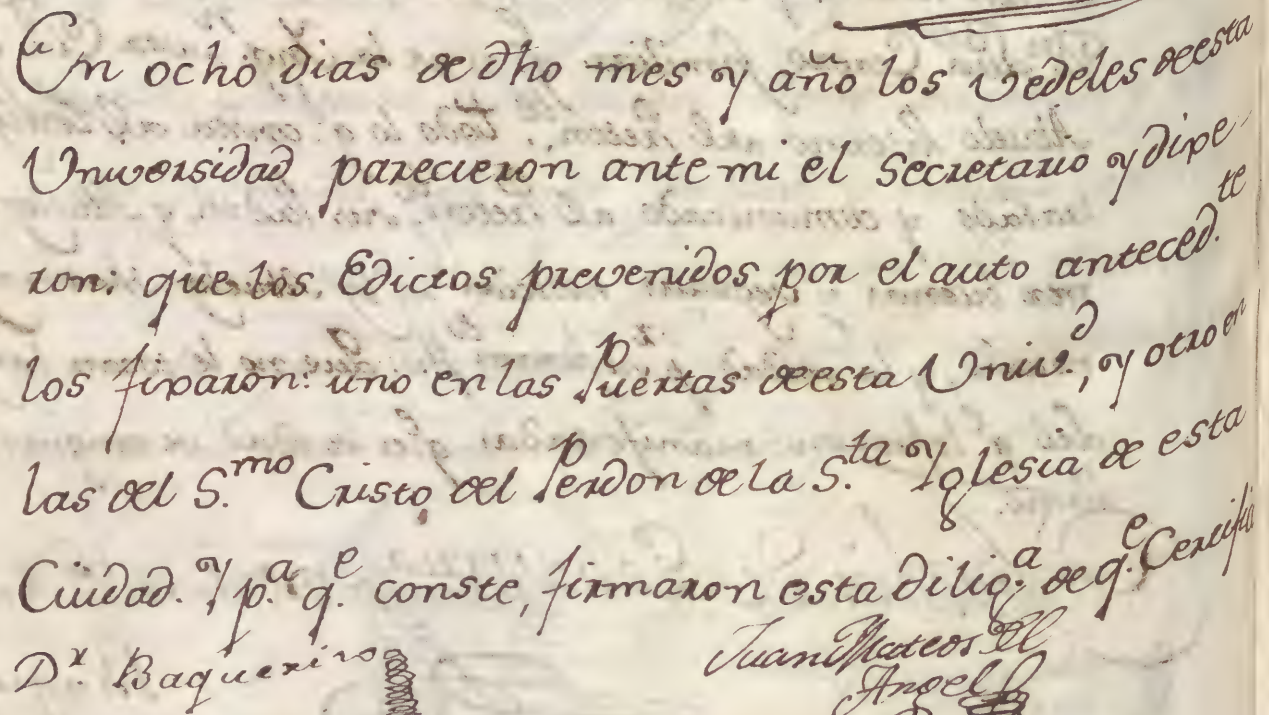 En ocho dias de dho mes y año los vedeles de esta
Universidad parecieron ante mi el Secretario y dixe-
ron: que los Edictos prevenidos por el auto anteced.te
los fixaron: uno en las Puertas de esta Univ.d, y otro en
las del S.mo Cristo del Perdon de la S.ta Yglesia de esta
Ciudad. Y p.a q.e conste, firmaron esta dilig.a de q.e Certifi
D.r Baqueriso
Juan Mateos
Angel